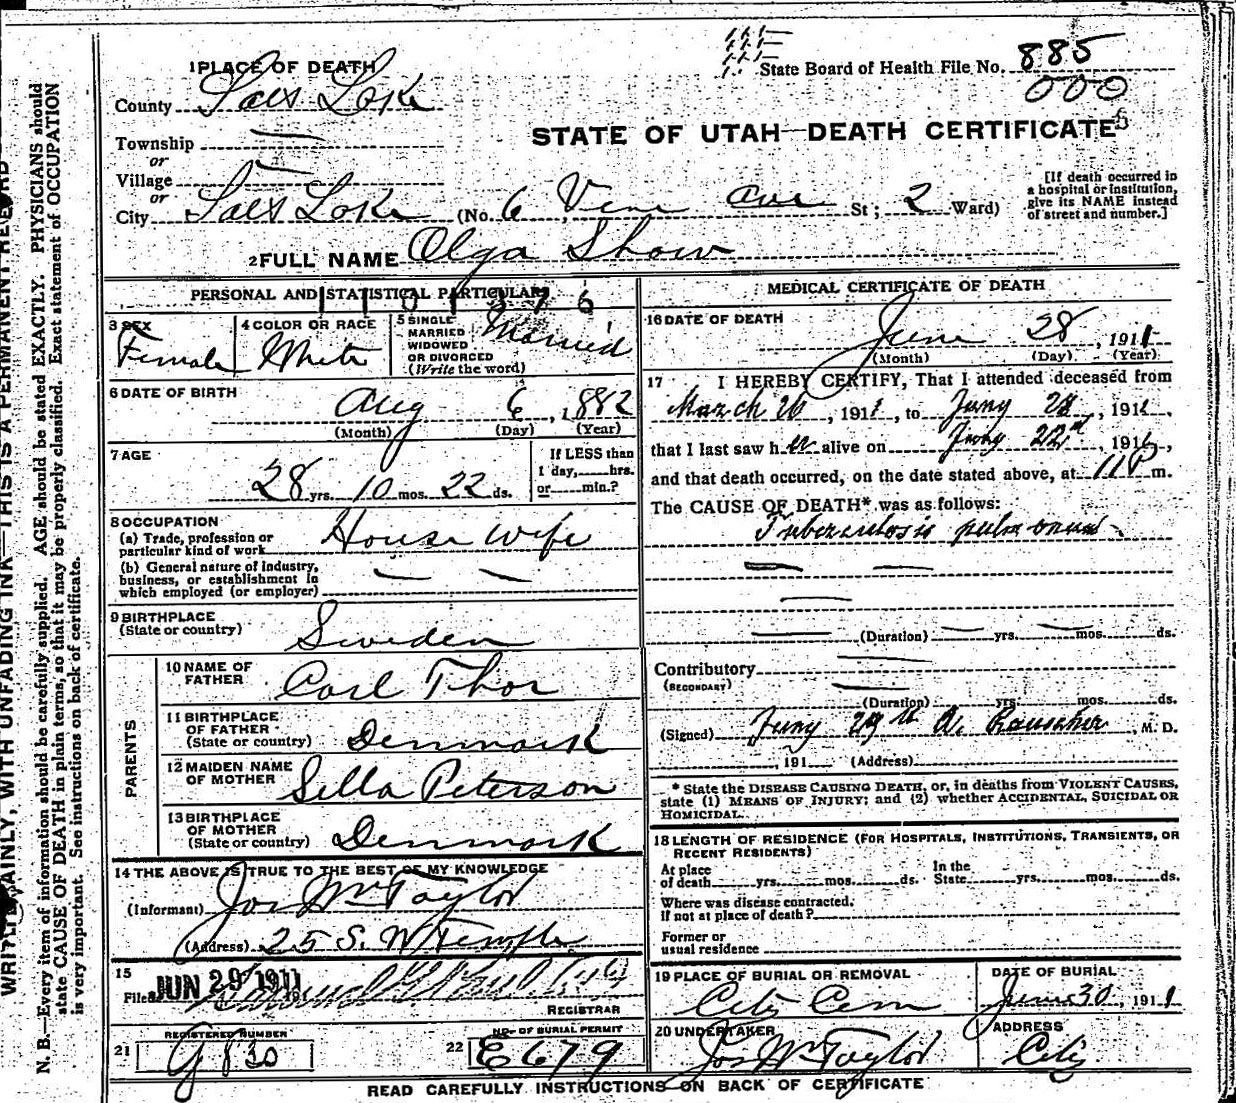 1 PLACE OF DEATH
State Board of Health File No. 885
000
County Salt Lake
STATE OF UTAH—DEATH CERTIFICATE
Township —
or
Village —
or
City Salt Lake (No. 6 Vine Ave St; 2 Ward)
[If death occurred in a hospital or institution, give its NAME instead of street and number.]
2 FULL NAME Olga Show
PERSONAL AND STATISTICAL PARTICULARS
3 SEX
Female
4 COLOR OR RACE
White
5 SINGLE MARRIED WIDOWED OR DIVORCED (Write the word)
Married
6 DATE OF BIRTH
Aug 6, 1882
(Month) (Day) (Year)
7 AGE
28 yrs. 10 mos. 22 ds.
If LESS than 1 day, hrs. or min.?
8 OCCUPATION
(a) Trade, profession or particular kind of work House wife
(b) General nature of industry, business, or establishment in which employed (or employer) — —
9 BIRTHPLACE
(State or country) Sweden
PARENTS
10 NAME OF FATHER Carl Thor
11 BIRTHPLACE OF FATHER (State or country) Denmark
12 MAIDEN NAME OF MOTHER Sella Peterson
13 BIRTHPLACE OF MOTHER (State or country) Denmark
14 THE ABOVE IS TRUE TO THE BEST OF MY KNOWLEDGE
(Informant) Jos Wm Taylor
(Address) 25 S. W Temple
15
Filed JUN 29 1911
REGISTRAR
REGISTERED NUMBER
21 G 830
NO. OF BURIAL PERMIT
22 E679
MEDICAL CERTIFICATE OF DEATH
16 DATE OF DEATH
June 28, 1911
(Month) (Day) (Year)
17 I HEREBY CERTIFY, That I attended deceased from
March 26, 1911, to Juny 28, 191
that I last saw her alive on Juny 22nd, 191
and that death occurred, on the date stated above, at 11 P m.
The CAUSE OF DEATH* was as follows:
Tuberculosis pulmonum
— —
—
— (Duration) — yrs. — mos. ds.
Contributory —
(SECONDARY) —
(Duration) yrs. mos. ds.
(Signed) Juny 29th A. Rauscher, M. D.
, 191 (Address)
* State the DISEASE CAUSING DEATH, or, in deaths from VIOLENT CAUSES, state (1) MEANS OF INJURY; and (2) whether ACCIDENTAL, SUICIDAL OR HOMICIDAL.
18 LENGTH OF RESIDENCE (FOR HOSPITALS, INSTITUTIONS, TRANSIENTS, OR RECENT RESIDENTS)
At place of death yrs. mos. ds. In the State yrs. mos. ds.
Where was disease contracted. If not at place of death?
Former or usual residence
19 PLACE OF BURIAL OR REMOVAL
City Cem
DATE OF BURIAL
June 30, 1911
20 UNDERTAKER
Jos Wm Taylor
ADDRESS
City
READ CAREFULLY INSTRUCTIONS ON BACK OF CERTIFICATE
WRITE PLAINLY, WITH UNFADING INK—THIS IS A PERMANENT RECORD
N. B.—Every item of information should be carefully supplied. AGE should be stated EXACTLY. PHYSICIANS should
state CAUSE OF DEATH in plain terms, so that it may be properly classified. Exact statement of OCCUPATION
is very important. See instructions on back of certificate.